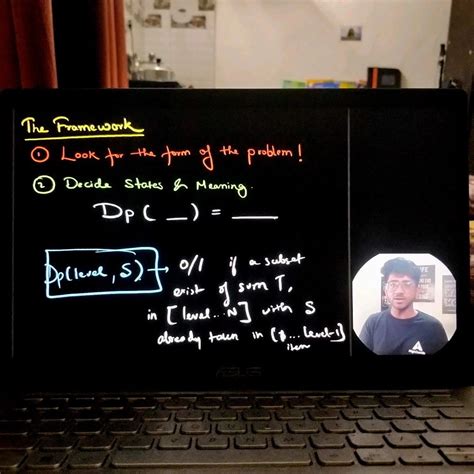 The Framework
① Look for the form of the problem!
② Decide States & Meaning.
Dp ( _ ) = ____
Dp(level, S) → 0/1 if a subset
exist of sum T,
in [level...N] with S
already taken in [ ... level-1]
item
ASUS